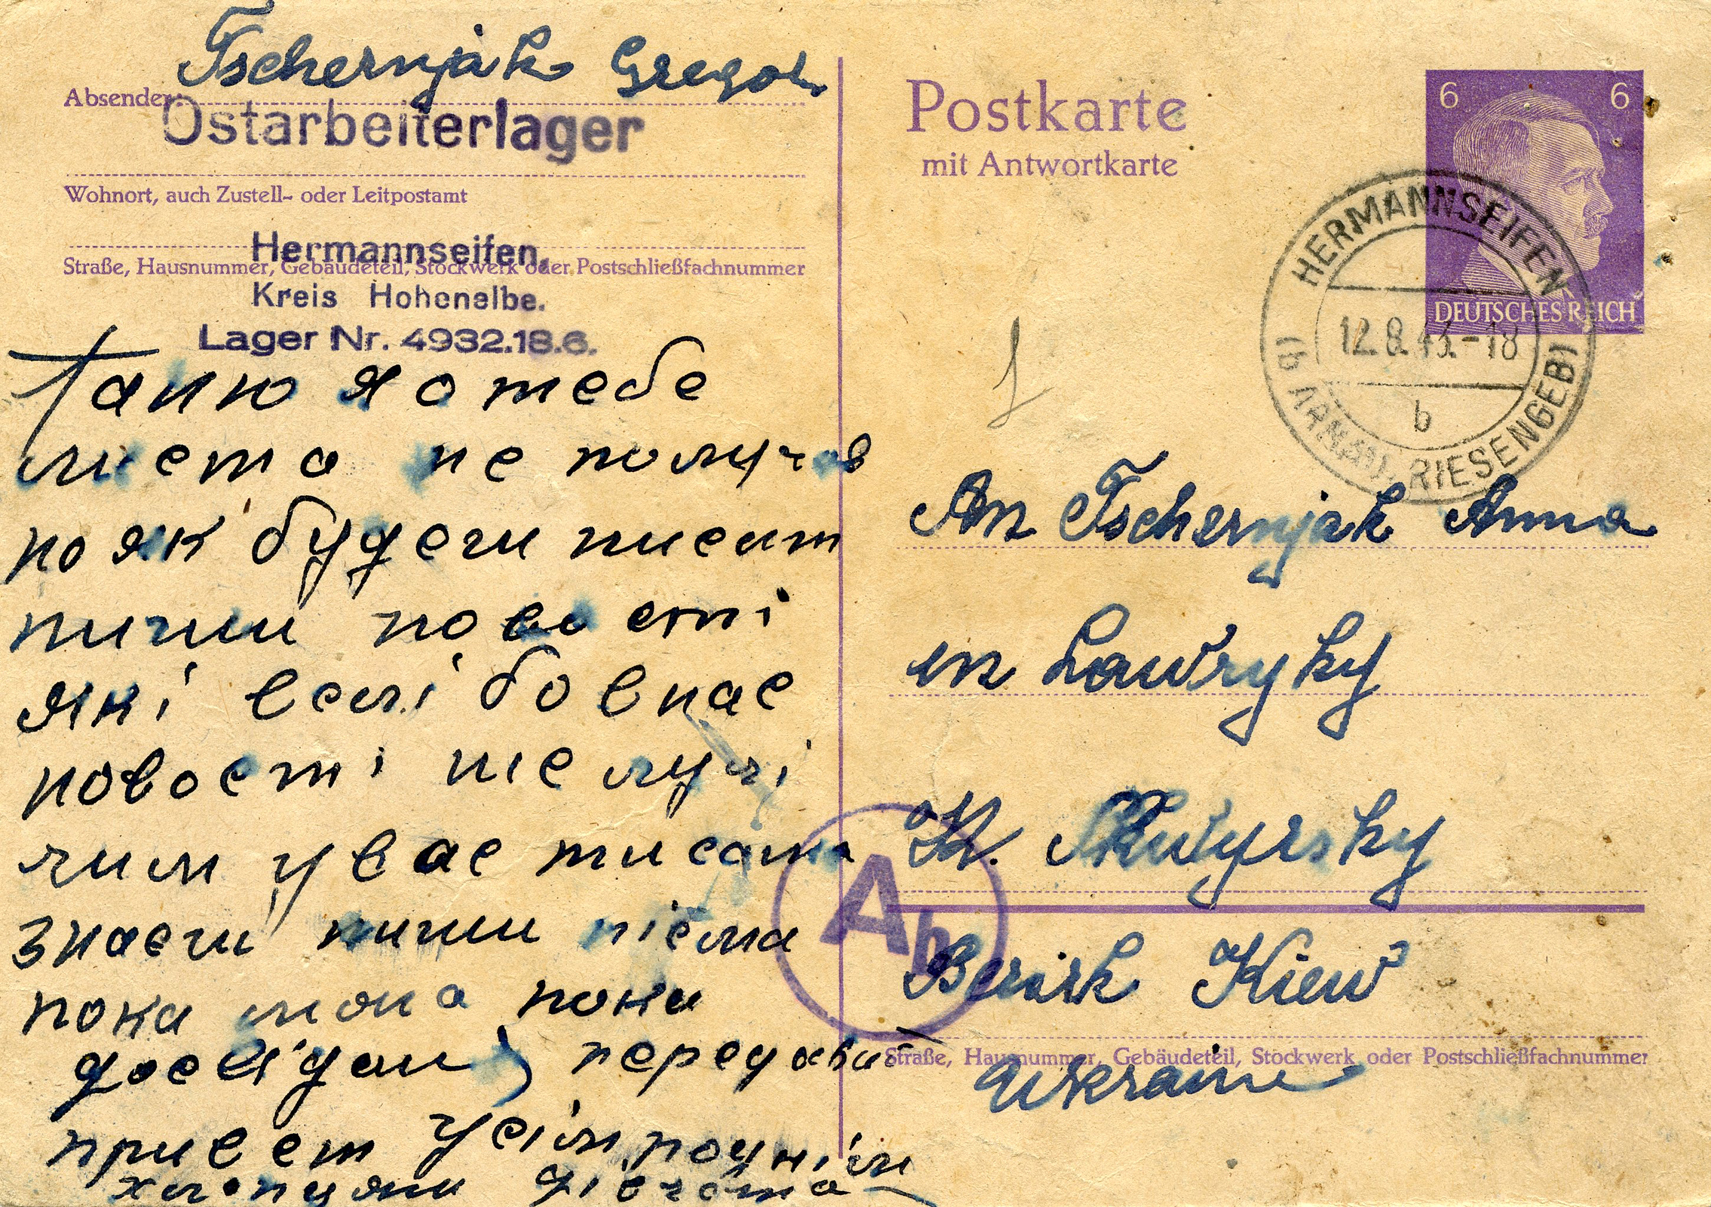 Tschernjak Gregor
Absender:
Ostarbeiterlager
Wohnort, auch Zustell- oder Leitpostamt
Hermannseifen,
Straße, Hausnummer, Gebäudeteil, Stockwerk oder Postschließfachnummer
Kreis Hohenelbe.
Lager Nr. 4932.18.6.
Галю я о тебе
листа не получав
но як будеш писат
пиши новості
які в селі бо в нас
новості не
чим у вас писать
знаеш пиши пісма
пока мона пока
досвідан передавай
привет усім роднім
хлопцям дівчата
Postkarte
mit Antwortkarte
6 6
DEUTSCHES REICH
HERMANNSEIFEN
12.8.43.-18
b
RIESENGEB)
An Tschernjak Anna
in Lawryky
Kr. Skwyrsky
Ab
Besirk Kiew
Straße, Hausnummer, Gebäudeteil, Stockwerk oder Postschließfachnummer
Ukraine